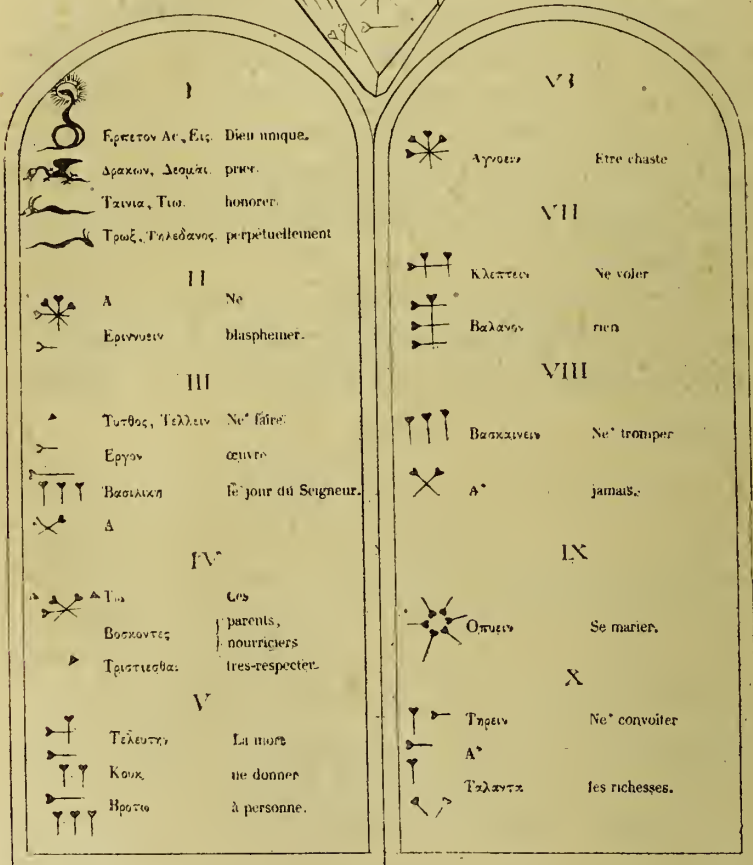 I
Ερπετον Ας, Εις. Dieu unique.
Δρακων, Δεομαι. prier.
Ταινια, Τιω. honorer.
Τρωξ, Τηλεδανος. perpétuellement
II
Α Ne
Εριννυειν blasphemer.
III
Τυτθος, Τελλειν Ne faire
Εργον œuvre
Βασιλικη le jour du Seigneur.
Α
IV
Τιω
Βοσκοντες parents, nourriciers
Τριστιεσθαι tres-respecter.
V
Τελευτην La mort
Κουκ ne donner
Βροτω à personne.
VI
Αγνοειν Etre chaste
VII
Κλεπτειν Ne voler
Βαλανον rien
VIII
Βασκαινειν Ne tromper
Α jamais.
IX
Οπυειν Se marier.
X
Τηρειν Ne convoiter
Α
Ταλαντα les richesses.